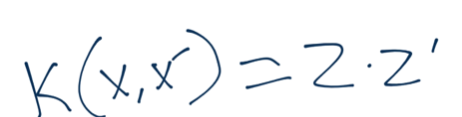 K(x,x') = z·z'